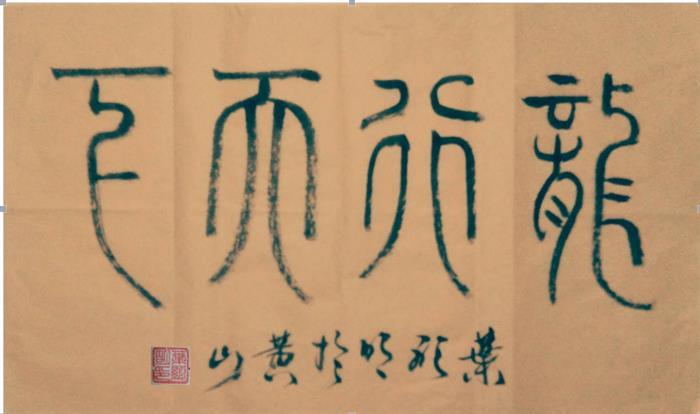 龍行天下
葉明於黄山